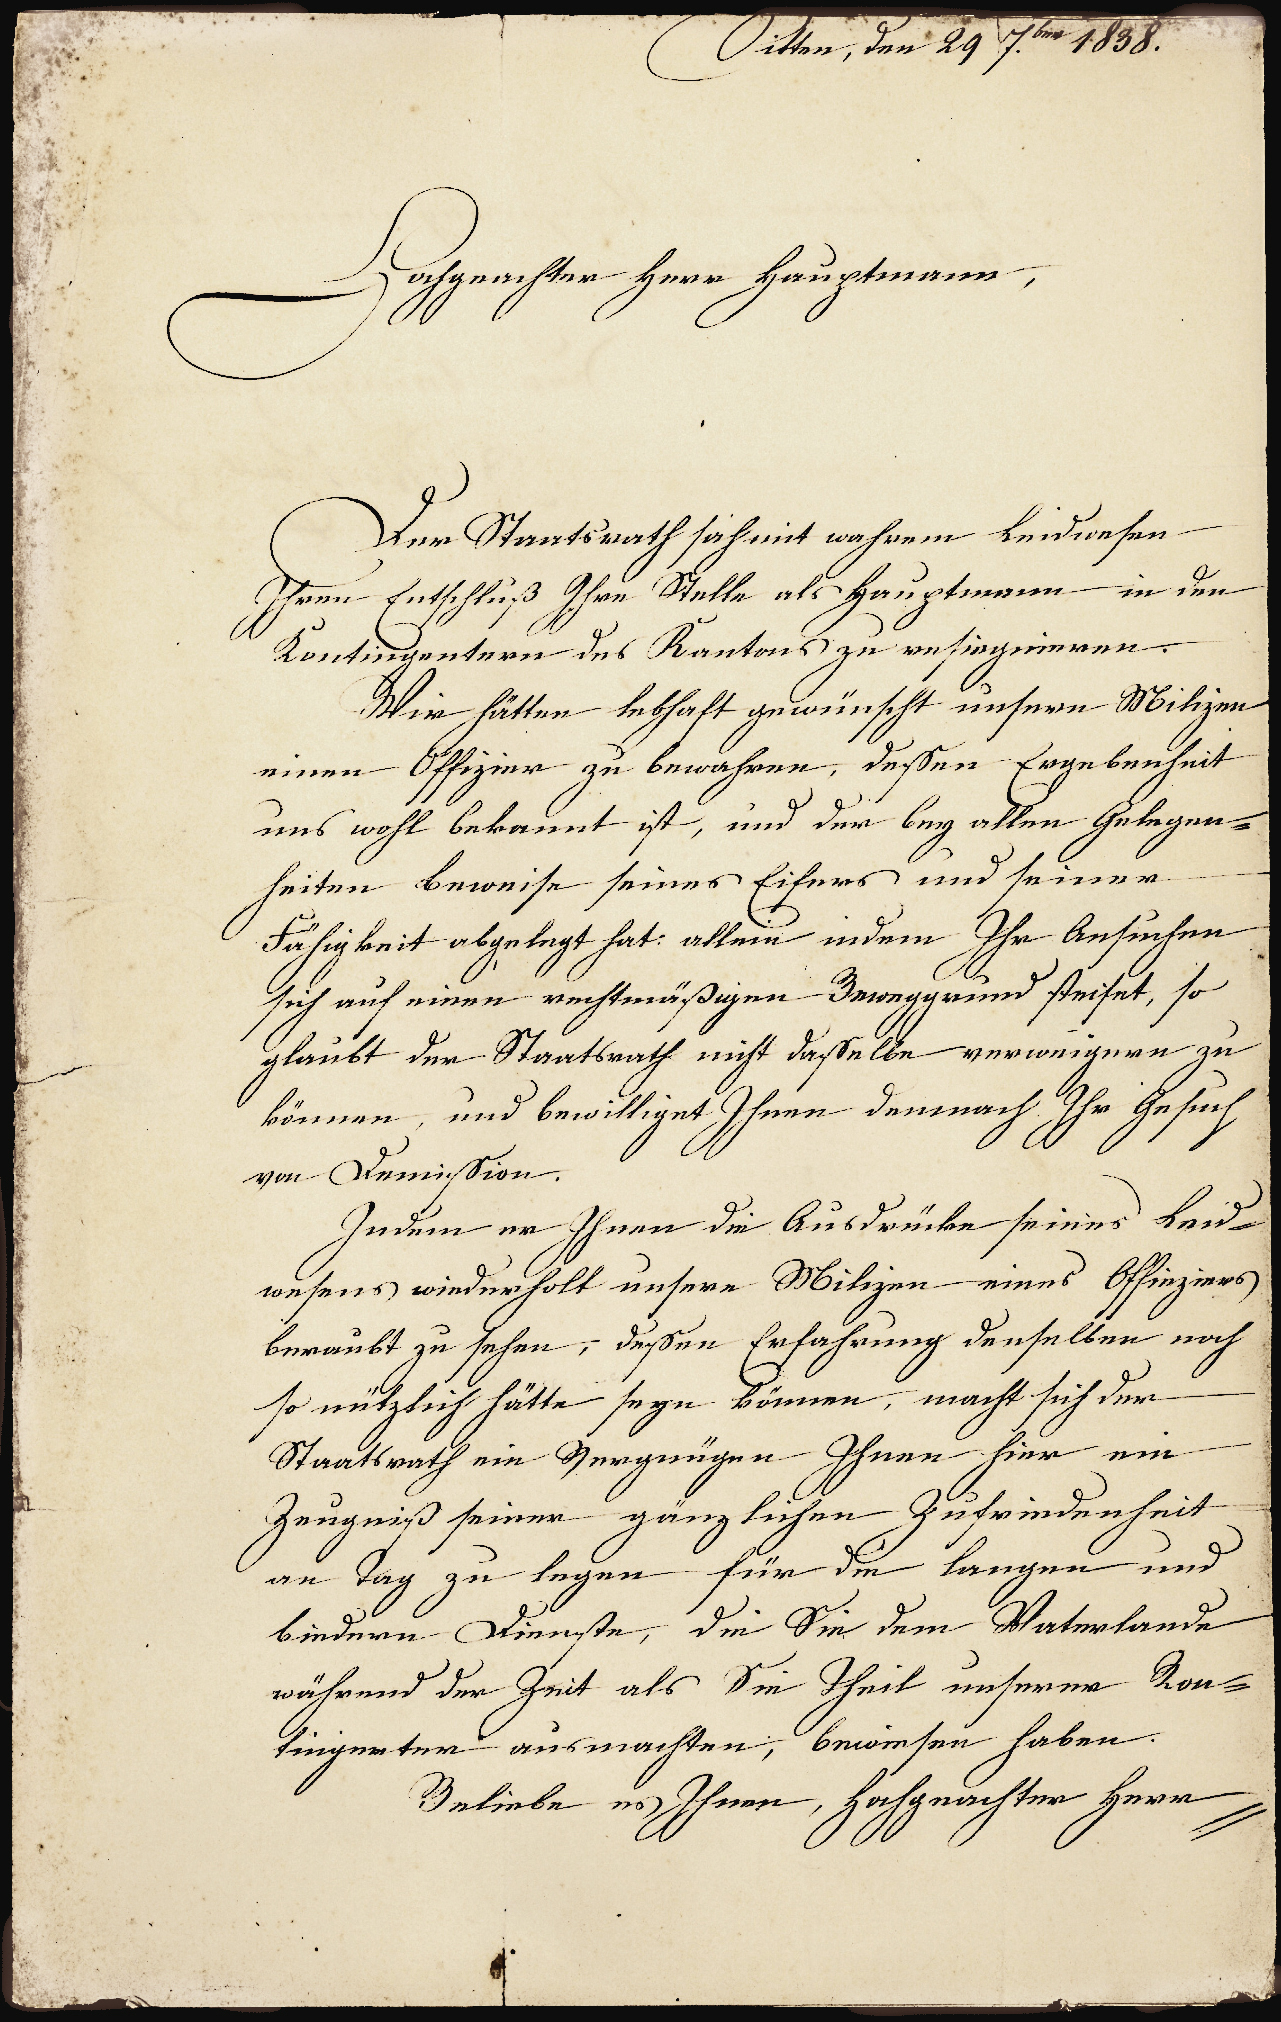 Sitten, den 29 7.ber 1838.
Hochgeachter Herr Hauptmann,
Der Staatsrath sah mit wahrem Leidwesen
Ihren Entschluß Ihre Stelle als Hauptmann in den
Kontingentern des Kantons zu resignieren.
Wir hätten lebhaft gewünscht unsern Milizen
einen Offizier zu bewahren, dessen Ergebenheit
uns wohl bekannt ist, und der bey allen Gelegen=
heiten Beweise seines Eifers und seiner
Fähigkeit abgelegt hat: allein indem Ihr Ansuchen
sich auf einen rechtmäßigen Beweggrund steifet, so
glaubt der Staatsrath nicht dasselbe verweigern zu
können, und bewilliget Ihnen demnach Ihr Gesuch
von Demission.
Indem er Ihnen die Ausdrücke seines Leid=
wesens wiederholt unsere Milizen eines Offiziers
beraubt zu sehen, dessen Erfahrung denselben noch
so nützlich hätte seyn können, macht sich der
Staatsrath ein Vergnügen Ihnen hier ein
Zeugniß seiner gänzlichen Zufriedenheit
an Tag zu legen für die langen und
biedern Dienste, die Sie dem Vaterlande
während der Zeit als Sie Theil unserer Kon=
tingenter ausmachten, bewiesen haben.
Beliebe es Ihnen, Hochgeachter Herr